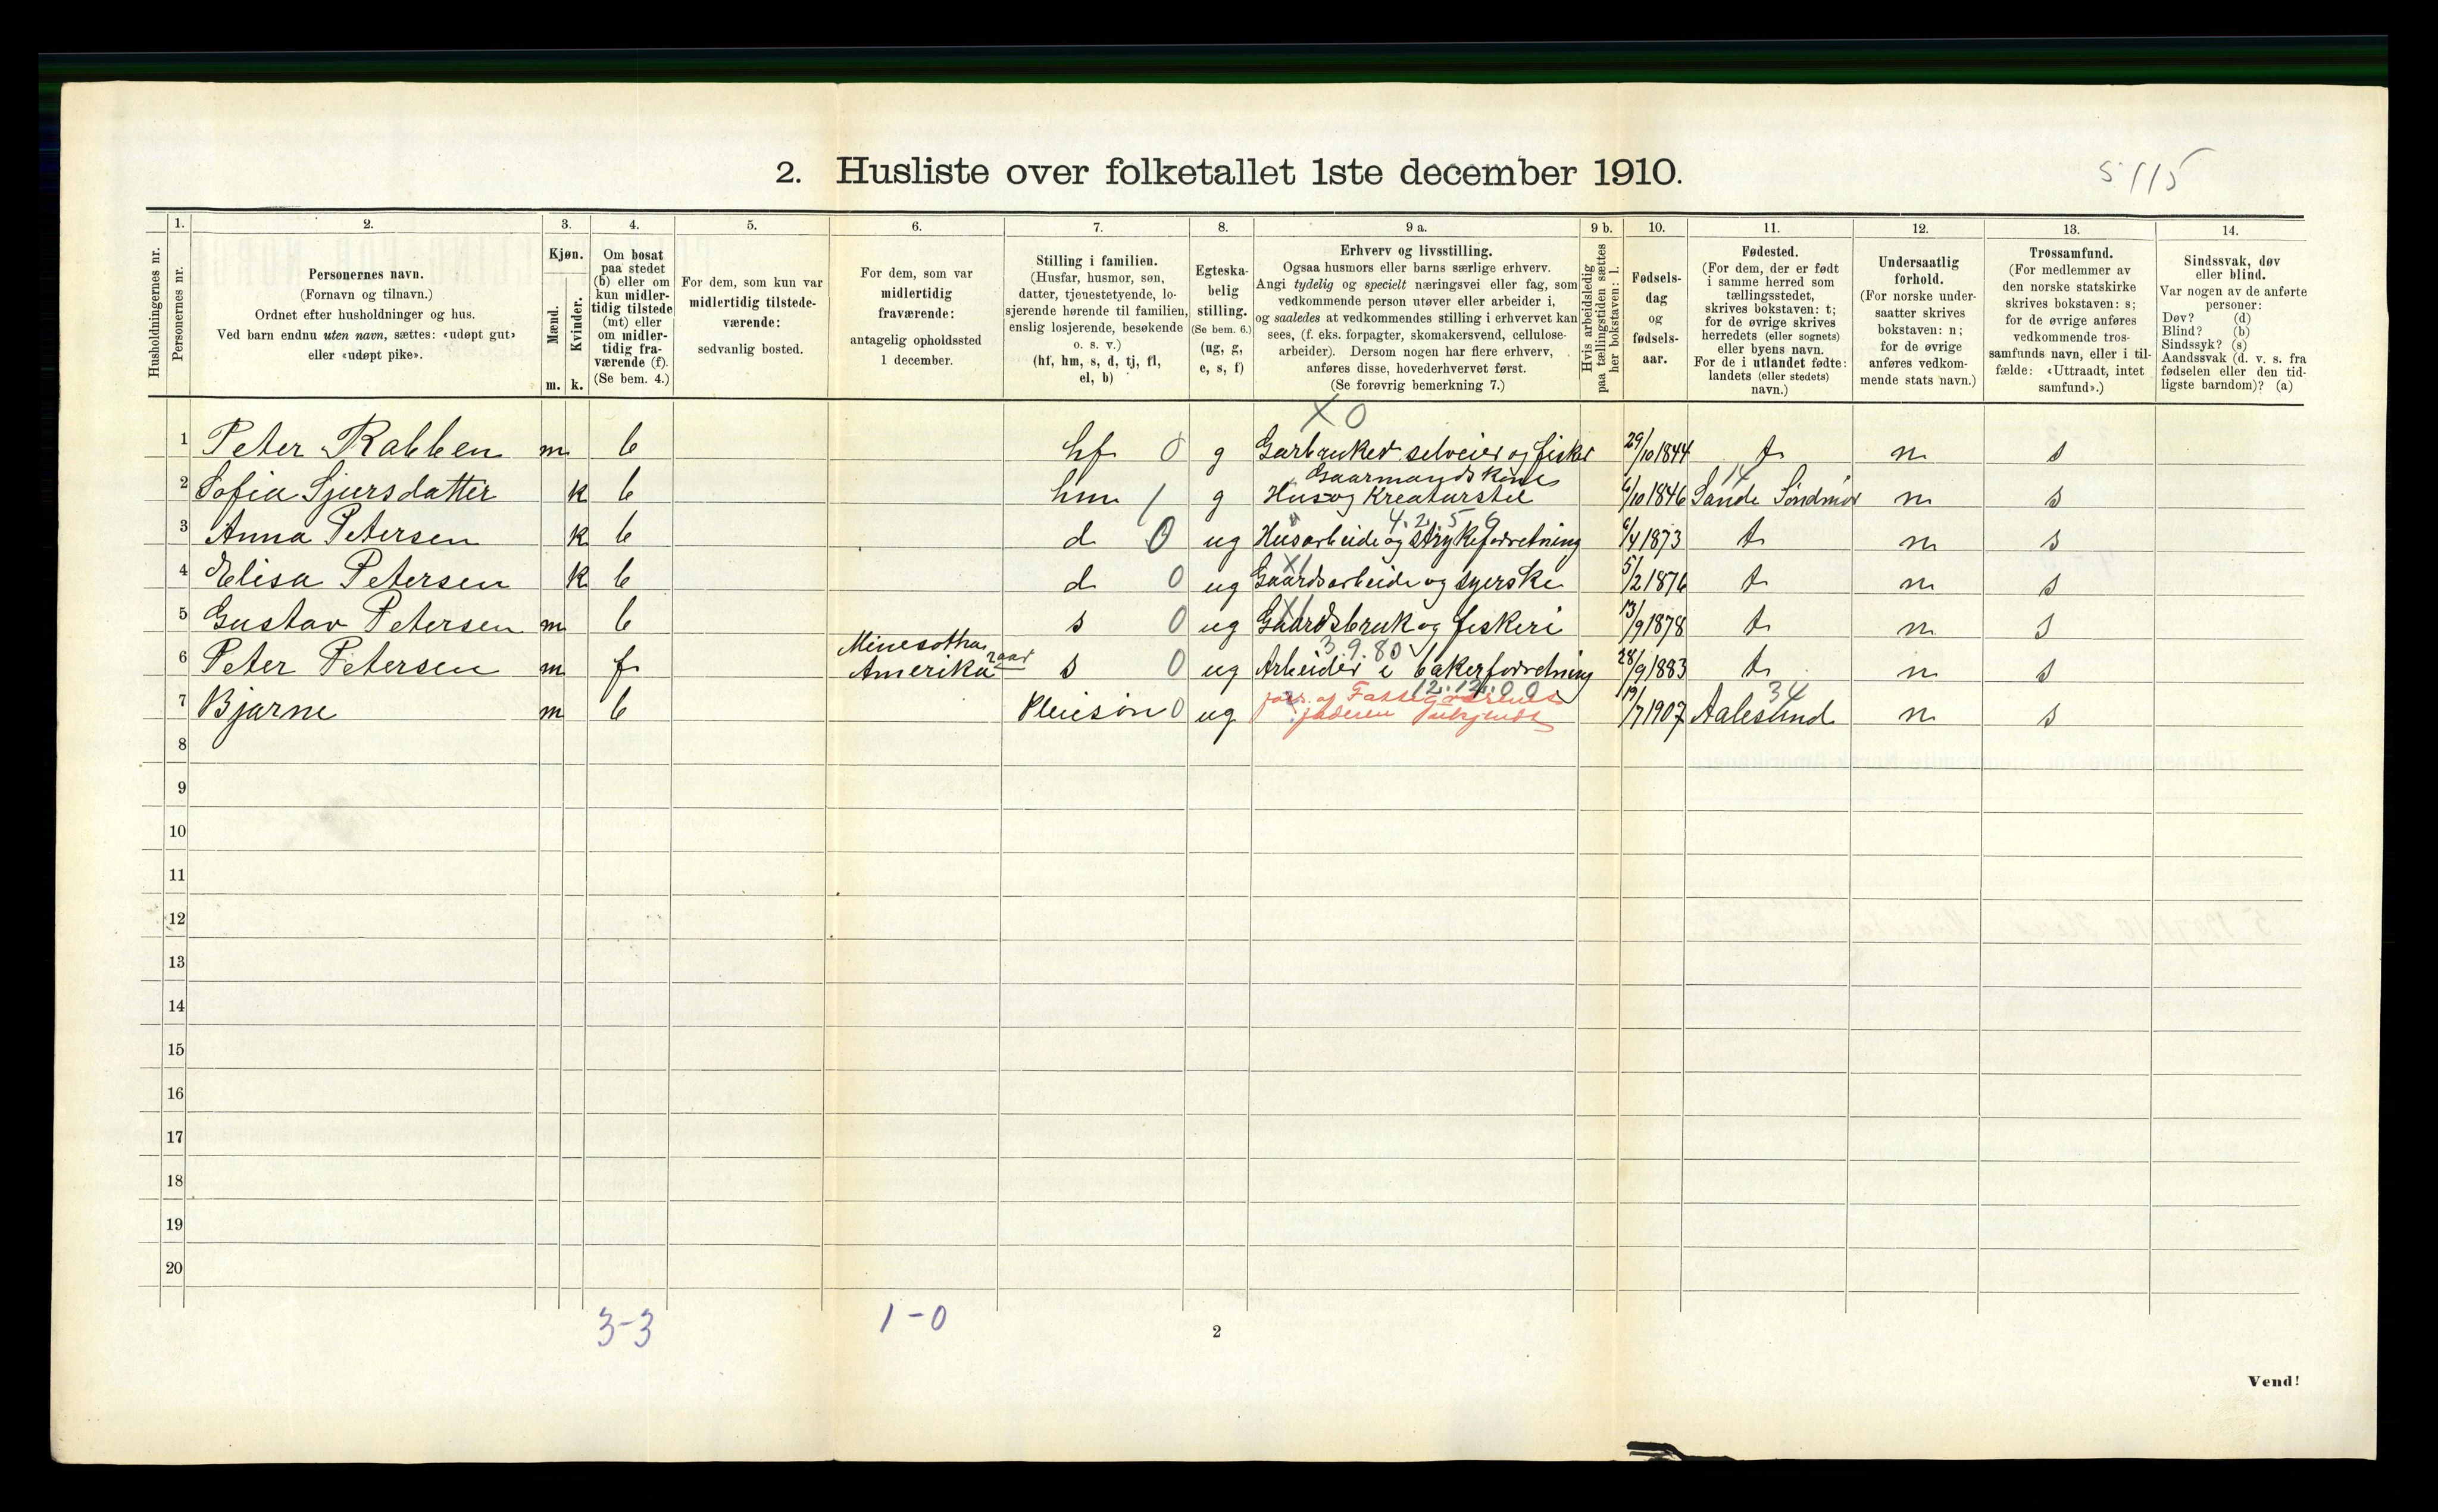 2. Husliste over folketallet 1ste december 1910.
5/15
Husholdningernes nr.
1. Personernes nr.
2. Personernes navn.
(Fornavn og tilnavn.)
Ordnet efter husholdninger og hus.
Ved barn endnu uten navn, sættes: «udøpt gut»
eller «udøpt pike».
3. Kjøn.
Mænd. m.
Kvinder. k.
4. Om bosat
paa stedet
(b) eller om
kun midler-
tidig tilstede
(mt) eller
om midler-
tidig fra-
værende (f).
(Se bem. 4.)
5. For dem, som kun var
midlertidig tilstede-
værende:
sedvanlig bosted.
6. For dem, som var
midlertidig
fraværende:
antagelig opholdssted
1 december.
7. Stilling i familien.
(Husfar, husmor, søn,
datter, tjenestetyende, lo-
sjerende hørende til familien,
enslig losjerende, besøkende
o. s. v.)
(hf, hm, s, d, tj, fl,
el, b)
8. Egteska-
belig
stilling.
(Se bem. 6.)
(ug, g,
e, s, f)
9 a. Erhverv og livsstilling.
Ogsaa husmors eller barns særlige erhverv.
Angi tydelig og specielt næringsvei eller fag, som
vedkommende person utøver eller arbeider i,
og saaledes at vedkommendes stilling i erhvervet kan
sees, (f. eks. forpagter, skomakersvend, cellulose-
arbeider). Dersom nogen har flere erhverv,
anføres disse, hovederhvervet først.
(Se forøvrig bemerkning 7.)
9 b. Hvis arbeidsledig
paa tællingstiden sættes
her bokstaven: l.
10. Fødsels-
dag
og
fødsels-
aar.
11. Fødested.
(For dem, der er født
i samme herred som
tællingsstedet,
skrives bokstaven: t;
for de øvrige skrives
herredets (eller sognets)
eller byens navn.
For de i utlandet fødte:
landets (eller stedets)
navn.)
12. Undersaatlig
forhold.
(For norske under-
saatter skrives
bokstaven: n;
for de øvrige
anføres vedkom-
mende stats navn.)
13. Trossamfund.
(For medlemmer av
den norske statskirke
skrives bokstaven: s;
for de øvrige anføres
vedkommende tros-
samfunds navn, eller i til-
fælde: «Uttraadt, intet
samfund».)
14. Sindssvak, døv
eller blind.
Var nogen av de anførte
personer:
Døv? (d)
Blind? (b)
Sindssyk? (s)
Aandssvak (d. v. s. fra
fødselen eller den tid-
ligste barndom)? (a)
X 0
1 Peter Rabben m b hf 0 g Garbruker selveier og fisker 29/10 1844 t n s
Gaarmands Kone 14
2 Sofia Sjursdatter k b hm 1 g Hus og Kreaturstel 6/10 1846 Sande Søndmør n s
4. 2. 5 6
3 Anna Petersen k b d 0 ug Husarbeide og strykeforretning 6/4 1873 t n s
4 Elisa Petersen k b d 0 ug Gaardsarbeide og syerske 5/2 1876 t n s
5 Gustav Petersen m b s 0 ug Gaardsbruk og fiskeri 13/9 1878 t n s
Minesotha 3.9.80
6 Peter Petersen m f Amerika 2 aar s 0 ug Arbeider i bakerforretning 28/9 1883 t n s
12.12.0 0 34
7 Bjarne m b Pleiesøn 0 ug fors. af Fattigvæsenet
faderen ubekjendt 19/7 1907 Aalesund n s
8
9
10
11
12
13
14
15
16
17
18
19
20
3-3 1-0
2
Vend!